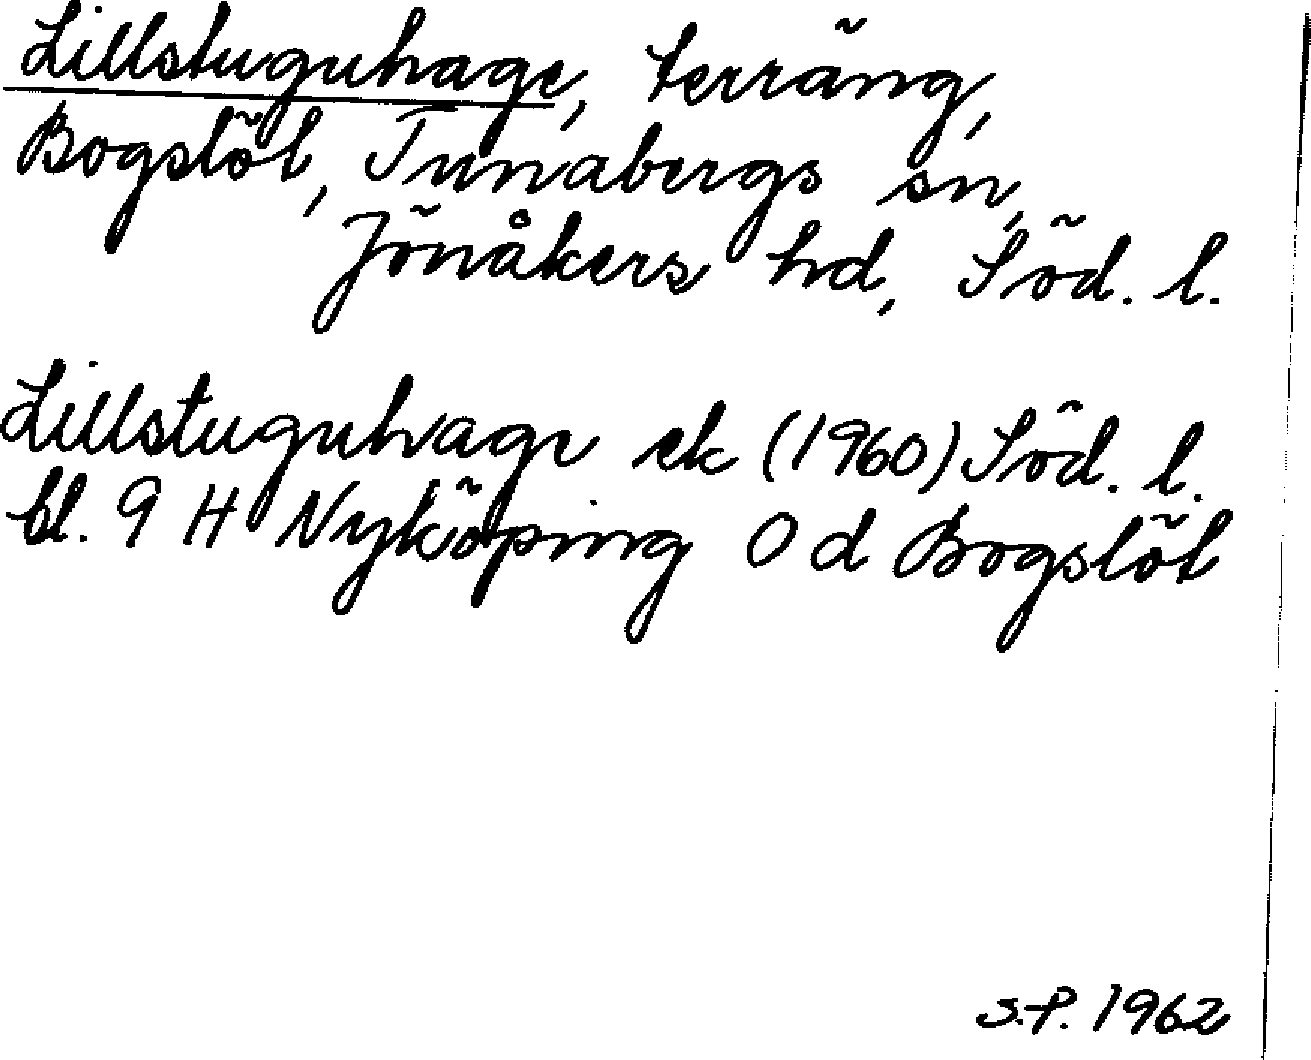 Lillstuguhage, terräng,
Bogslöt, Tunabergs sn,
Jönåkers hd, Söd. l.
Lillstuguhage ek (1960) Söd. l.
bl. 9 H Nyköping 0 d Bogslöt
S.P. 1962